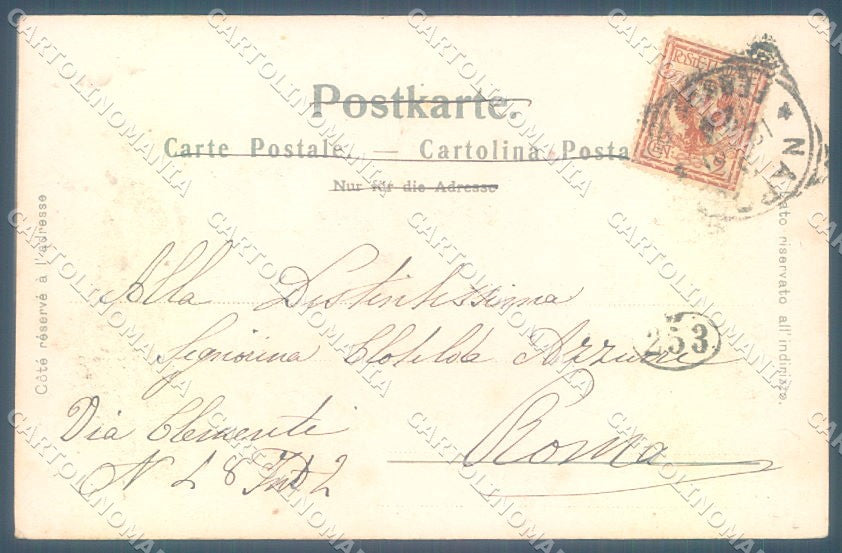 Postkarte.
Carte Postale — Cartolina Posta
Nur für die Adresse
Côté réservé à l'adresse
Lato riservato all'indirizzo.
CENT 2
NAPOLI
253
Alla Distintissima
Signorina Clotilde
Roma
Via Clementi
N 18 Int 2
CARTOLINOMANIA